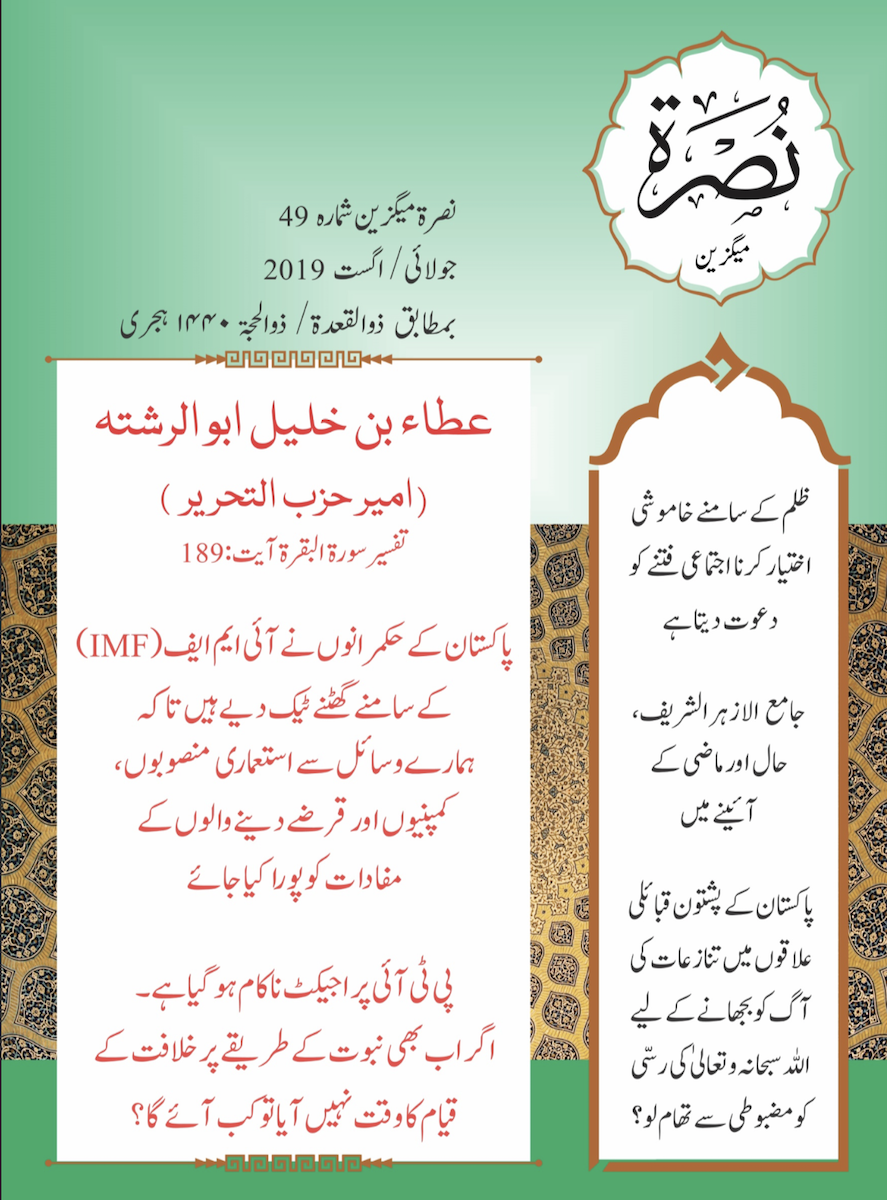 نُصرَة
میگزین
نصرۃ میگزین شمارہ 49
جولائی/ اگست 2019
بمطابق ذوالقعدۃ/ ذوالحجۃ ۱۴۴۰ ہجری
عطاء بن خلیل ابوالرشتہ
(امیر حزب التحریر)
تفسیر سورۃ البقرۃ آیت:189
پاکستان کے حکمرانوں نے آئی ایم ایف(IMF)
کے سامنے گھٹنے ٹیک دیے ہیں تاکہ
ہمارے وسائل سے استعماری منصوبوں،
کمپنیوں اور قرضے دینے والوں کے
مفادات کو پورا کیا جائے
پی ٹی آئی پراجیکٹ ناکام ہو گیا ہے۔
اگر اب بھی نبوت کے طریقے پر خلافت کے
قیام کا وقت نہیں آیا تو کب آئے گا؟
ظلم کے سامنے خاموشی
اختیار کرنا اجتماعی فتنے کو
دعوت دیتا ہے
جامع الازہر الشریف،
حال اور ماضی کے
آئینے میں
پاکستان کے پشتون قبائلی
علاقوں میں تنازعات کی
آگ کو بجھانے کے لیے
اللہ سبحانہ وتعالیٰ کی رسّی
کو مضبوطی سے تھام لو؟